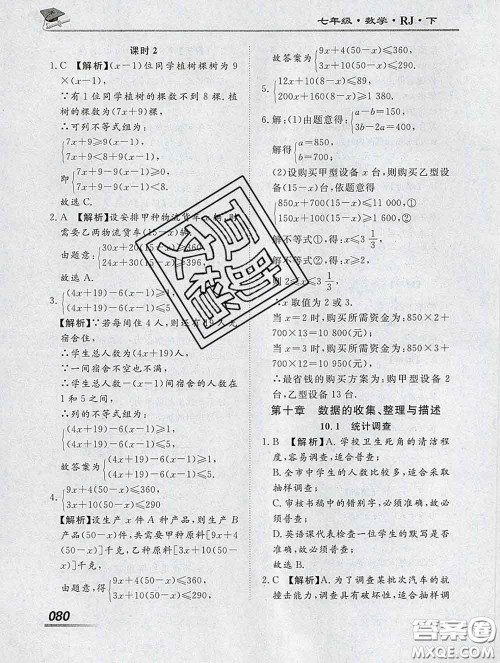 七年级·数学·RJ·下
课时2
1. C 【解析】(x-1)位同学植树棵树为9
×(x-1).
∵有1位同学植树的棵数不到8棵.植
树的棵数为(7x+9)棵,
∴可列不等式组为:
{7x+9≥9(x-1),
7x+9<8+9(x-1).
即{7x+9<8+9(x-1)
7x+9≥9(x-1)
故选C.
2. A 【解析】设安排甲种物流货车
需要乙两物流货车(15-x)
由题意:{30x+20(15-x)
24x+30(15-x)≥396
故选A.
3. {(4x+19)-6(x-1)≥1
(4x+19)-6(x-1)≤5
【解析】∵若每间住4人,则还有
宿舍住,
∴学生总人数为(4x+19)人.
∵一间宿舍不空也不满,
∴学生总人数-(x-1)间宿舍的人数在
1和5之间,
∴列的不等式组为:
{(4x+19)-6(x-1)≥1
(4x+19)-6(x-1)≤5
故答案为{(4x+19)-6(x-1)≥1
(4x+19)-6(x-1)≤5
4. {9x+4(50-x)≤360,
3x+10(50-x)≤290
【解析】设生产x件A种产品,则生产B
产品(50-x)件,共需要甲种原料[9x+
4(50-x)]千克,乙种原料[3x+10(50
-x)]千克,
由题意,得{9x+4(50-x)≤360,
3x+10(50-x)≤290
故答案为{9x+4(50-x)≤360,
3x+10(50-x)≤290
5. {12x+10(8-x)≥89,
200x+160(8-x)≥1 380
6. 解:(1)由题意得:{a-b=150,
3b-2a=400,
解得{a=850,
b=700;
(2)设购买甲型设备x台,则购买乙型设
备(15-x)台,依题意得
解不等式①,得:x≤3 1/3,
∴x取值为2或3.
当x=2时,购买所需资金为:850×2+
700×13=10 800(元),
当x=3时,购买所需资金为:850×3+
700×12=10 950(元),
∴最省钱的购买方案为:购甲型设备2
台,乙型设备13台.
第十章 数据的收集、整理与描述
10.1 统计调查
1. B 【解析】A.学校卫生死角的清洁程
度,容易调查,适合普查;
B.全市中学生的人数比较多,适合采取
抽样调查;
C.审核书稿中的错别字,必须准确,故必
须普查;
D.英语课代表检查一位学生的默写是否
准确,适合普查.
故选B.
2. C 【解析】A.为了调查某批次汽车的抗
撞击能力,调查具有破坏性,适合抽样调
080